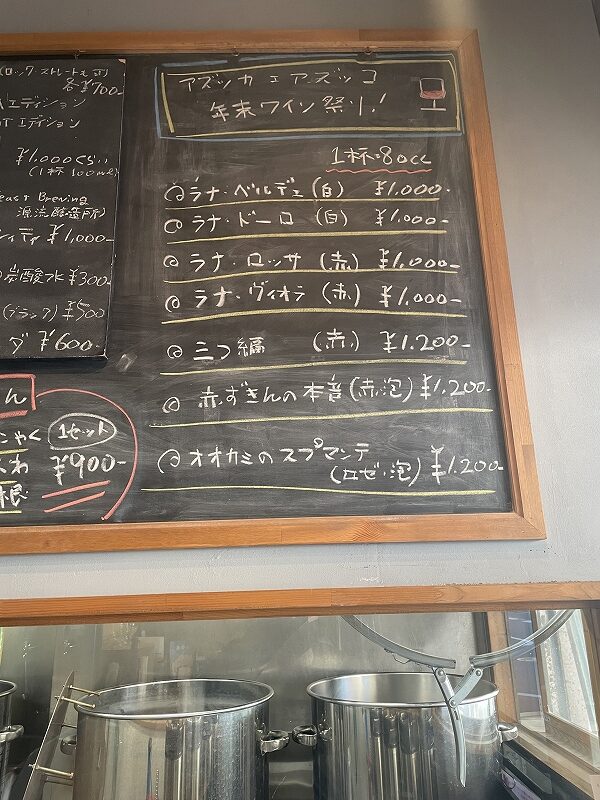 (ロック・ストレート可)
各¥700-
エディション
エディション
¥1,000くらい
(1杯100ml)
Brewing
源流醸造所)
ティ ¥1,000-
炭酸水¥300-
(ブランク) ¥500
ダ ¥600-
ん
こゃく
1セット
¥900-
根
アズッカエアズッコ
年末ワイン祭り!
1杯:80cc
◎ラナ・ベルデ(白) ¥1,000-
◎ラナ・ドーロ (白) ¥1,000-
◎ラナ・ロッサ (赤) ¥1,000-
◎ラナ・ヴィオラ (赤) ¥1,000-
◎三つ編 (赤) ¥1,200-
◎赤ずきんの本音(赤泡) ¥1,200-
◎オオカミのスプマンテ
(ロゼ・泡) ¥1,200-